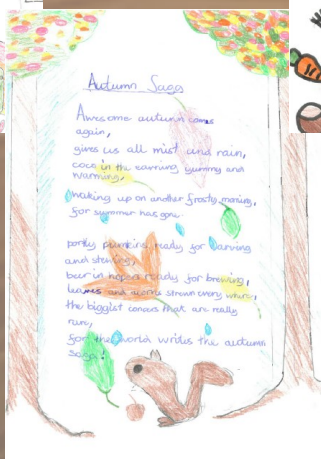 Autumn Saga
Awesome autumn comes
again,
gives us all mist and rain,
coco in the earning yummy and
warming,
waking up on another frosty morning,
for summer has gone.
portly pumkins ready for carving
and stewing,
beer in hops ready for brewing,
leaves and acorns strewn every where,
the biggist concers that are really
rare,
for the world writes the autumn
saga!